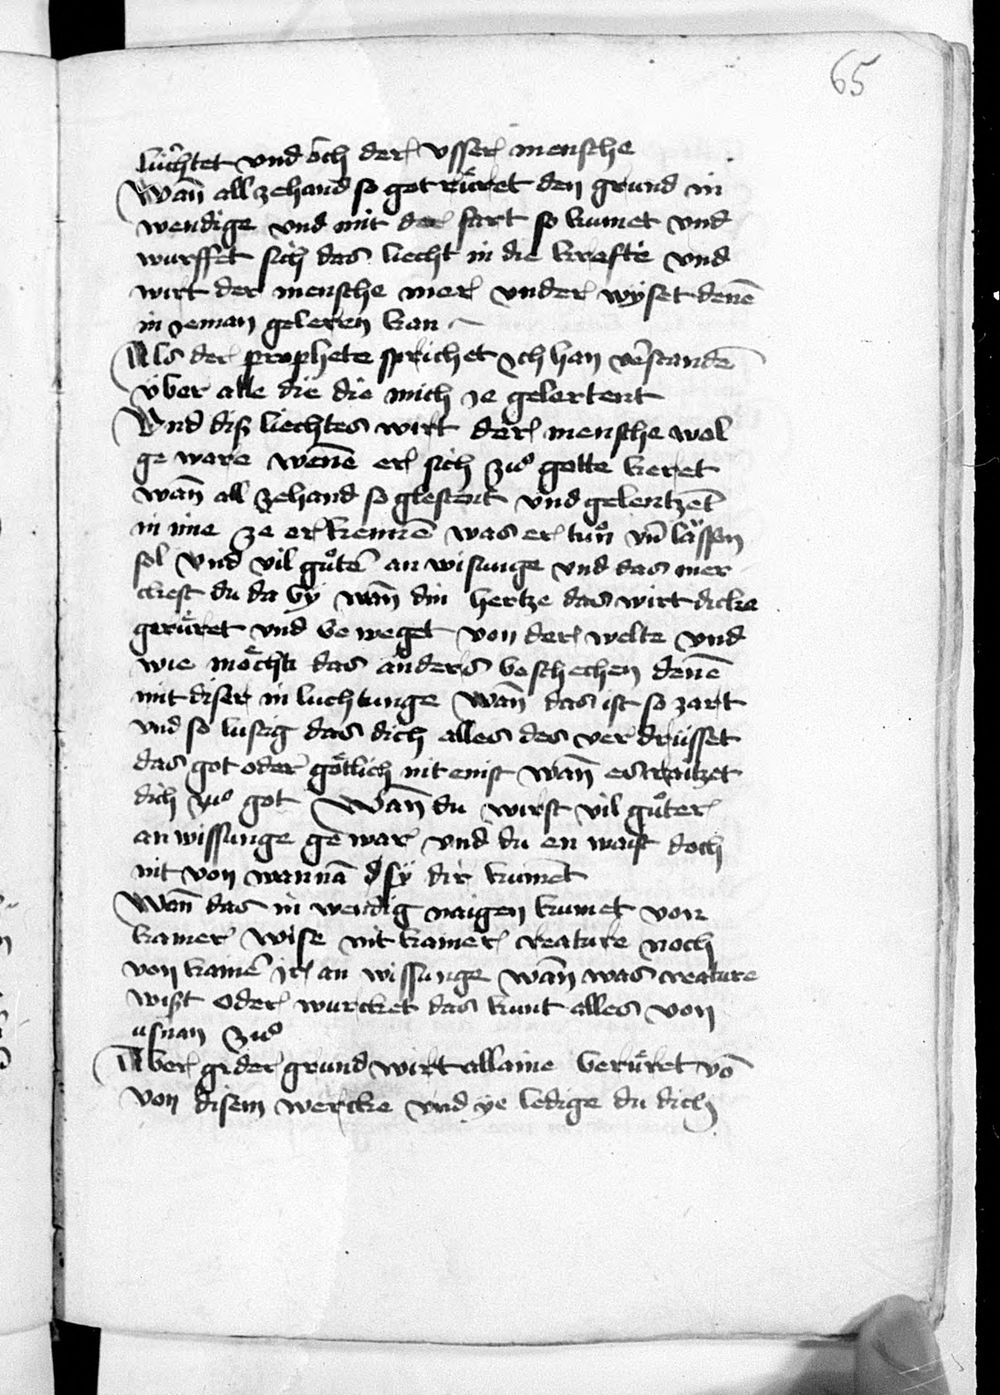 65
lúchtet vnd óch der vsser mensche
Wan̄ all zehand so got rúret den grund in
wendige vnd mit der fart so kumet vnd
wurffet sich das liecht in die krefte vnd
wirt der mensche mer vnder wÿset denē
in ieman geleren kan
Als der prophete sprichet Ich han v̄standē
über alle die die mich ie gelertent
Vnd diß liechtes wirt der mensche wol
ge ware wenēn er sich zuͦ gotte keret
wan̄ all zehand so glestent vnd gelentzet
in ime ze er kennēn was er tuͦn vn̄ lässen
sol vnd vil guͦtēr an wisunge vnd das mer
ckest du da bÿ wan̄ din hertze das wirt dicke
gerüret vnd be weget von der welte vnd
wie möcht das anders beschechen denē
mit diser in luchtunge wan̄ das ist so zart
vnd so lustig das dich alles des ver drüsset
das got oder götlich nit enist wan̄ es raitzet
dich zuͦ got Wan̄ du wirst vil guͦter
an wissunge ge war vnd du en waist doch
nit von wannā sÿ dir kumēt
Wan̄ das in wendig naigen kumet von
kainer wise nit kainer creature noch
von kainēr ir an wissunge wan̄ was creature
wißt oder wurcket das kunt alles von
usnan zuͦ
Aber der grund wirt allaine berüret vō
von disem wercke vnd ye ledige du dich